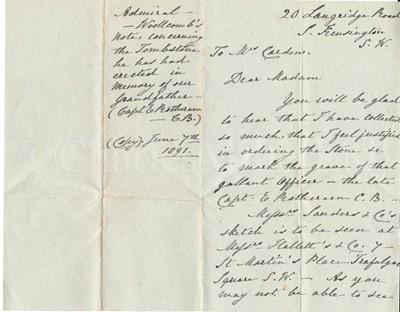 Admiral -
- Woollcomb's
Note, concerning
the Tombstone
he has had
erected in
memory of our
Grandfather -
(Capt E Rotheram
- C.B.)
(Copy), June 7th
1891.
20 Langridge Road
S. Kensington
S.W.
To Mrs Cardew.
Dear Madam
You will be glad
to hear that I have collected
so much, that I feel justified
in ordering the Stone &c
to mark the grave of that
gallant Officer - the late
Capt. E Rotheram C.B. -
Messrs Sanders & Co's
sketch is to be seen at
Messrs Hallett's & Co. 7 -
St Martin's Place Trafalgar
Square S.W - As you
may not be able to see